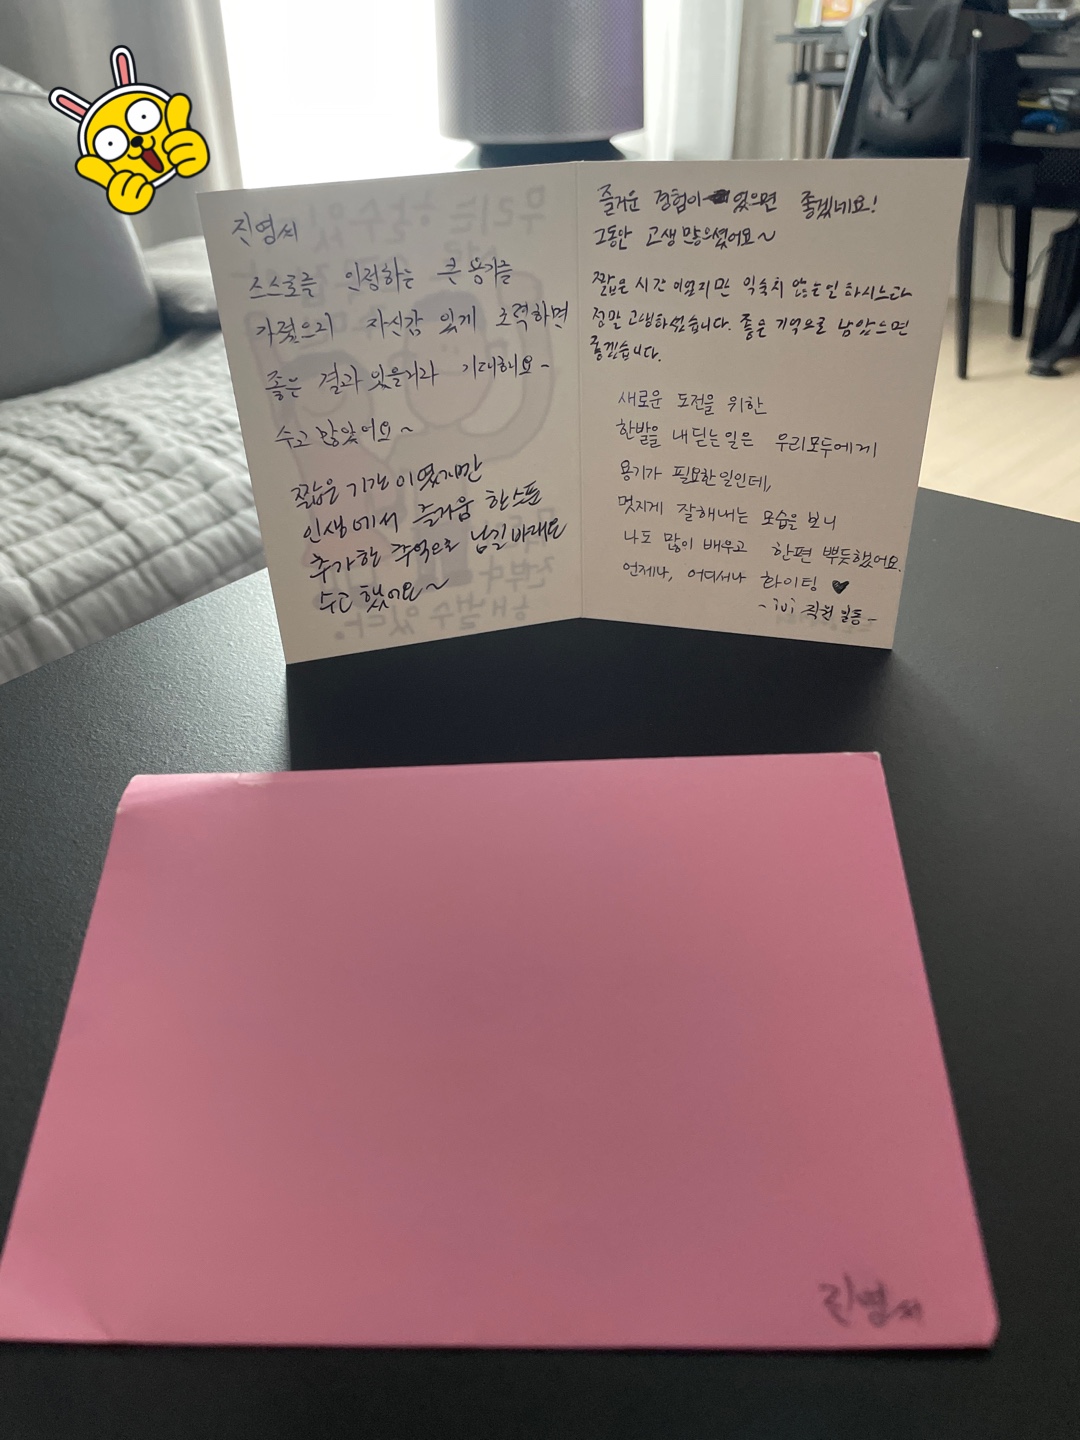 진영씨
스스로를 인정하는 큰 용기를
가졌으니 자신감 있게 노력하면
좋은 결과 있을거라 기대해요~
수고 많았어요~
짧은 기간이였지만
인생에서 즐거움 한스푼
추가한 추억으로 남길바래요
수고 했어요~
즐거운 경험이 있으면 좋겠네요!
그동안 고생 많으셨어요~
짧은 시간이었지만 익숙치 않는일 하시느라
정말 고생하셨습니다. 좋은 기억으로 남았으면
좋겠습니다.
새로운 도전을 위한
한발을 내딛는일은 우리모두에게
용기가 필요한일인데,
멋지게 잘해내는 모습을 보니
나도 많이 배우고 한편 뿌듯했어요.
언제나, 어디서나 화이팅 ♥
- 직원 일동 -
진영씨